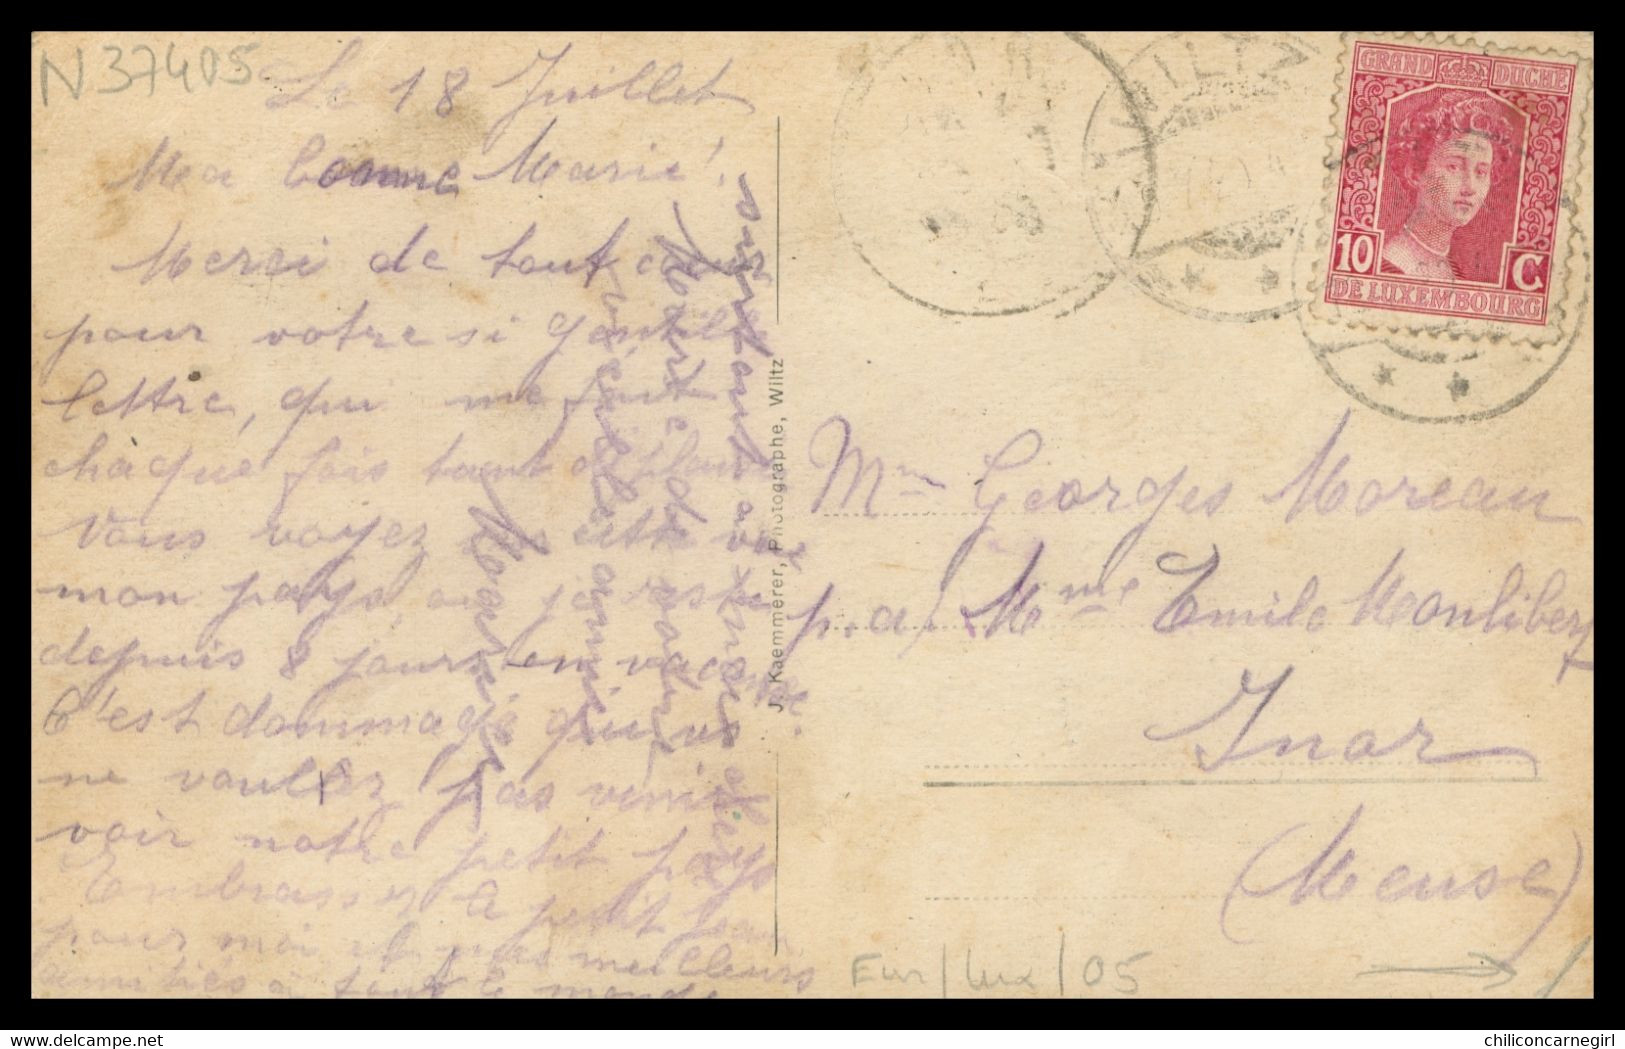 N 37405
Le 18 Juillet
Ma bonne Marie!
Merci de tout cœur
pour votre si gentille
lettre, qui me fait
chaque fois tant de plaisir
Vous voyez cette vue
mon pays, où je reste
depuis 8 jours en vacance
C'est dommage que vs
ne voulez pas venir
voir notre petit pays
Embrassez le petit Jean
pour moi et mes meilleurs
amitiés à tout le monde
Votre
vieille amie
J. Kaemmerer, Photographe, Wiltz
WILTZ
GRAND DUCHÉ
10 C
DE LUXEMBOURG
Mme Georges Moreau
p. a. Mme Emile Monlibert
Inor
(Meuse)
Eur/Lux/05
delcampe.net
chiliconcarnegirl